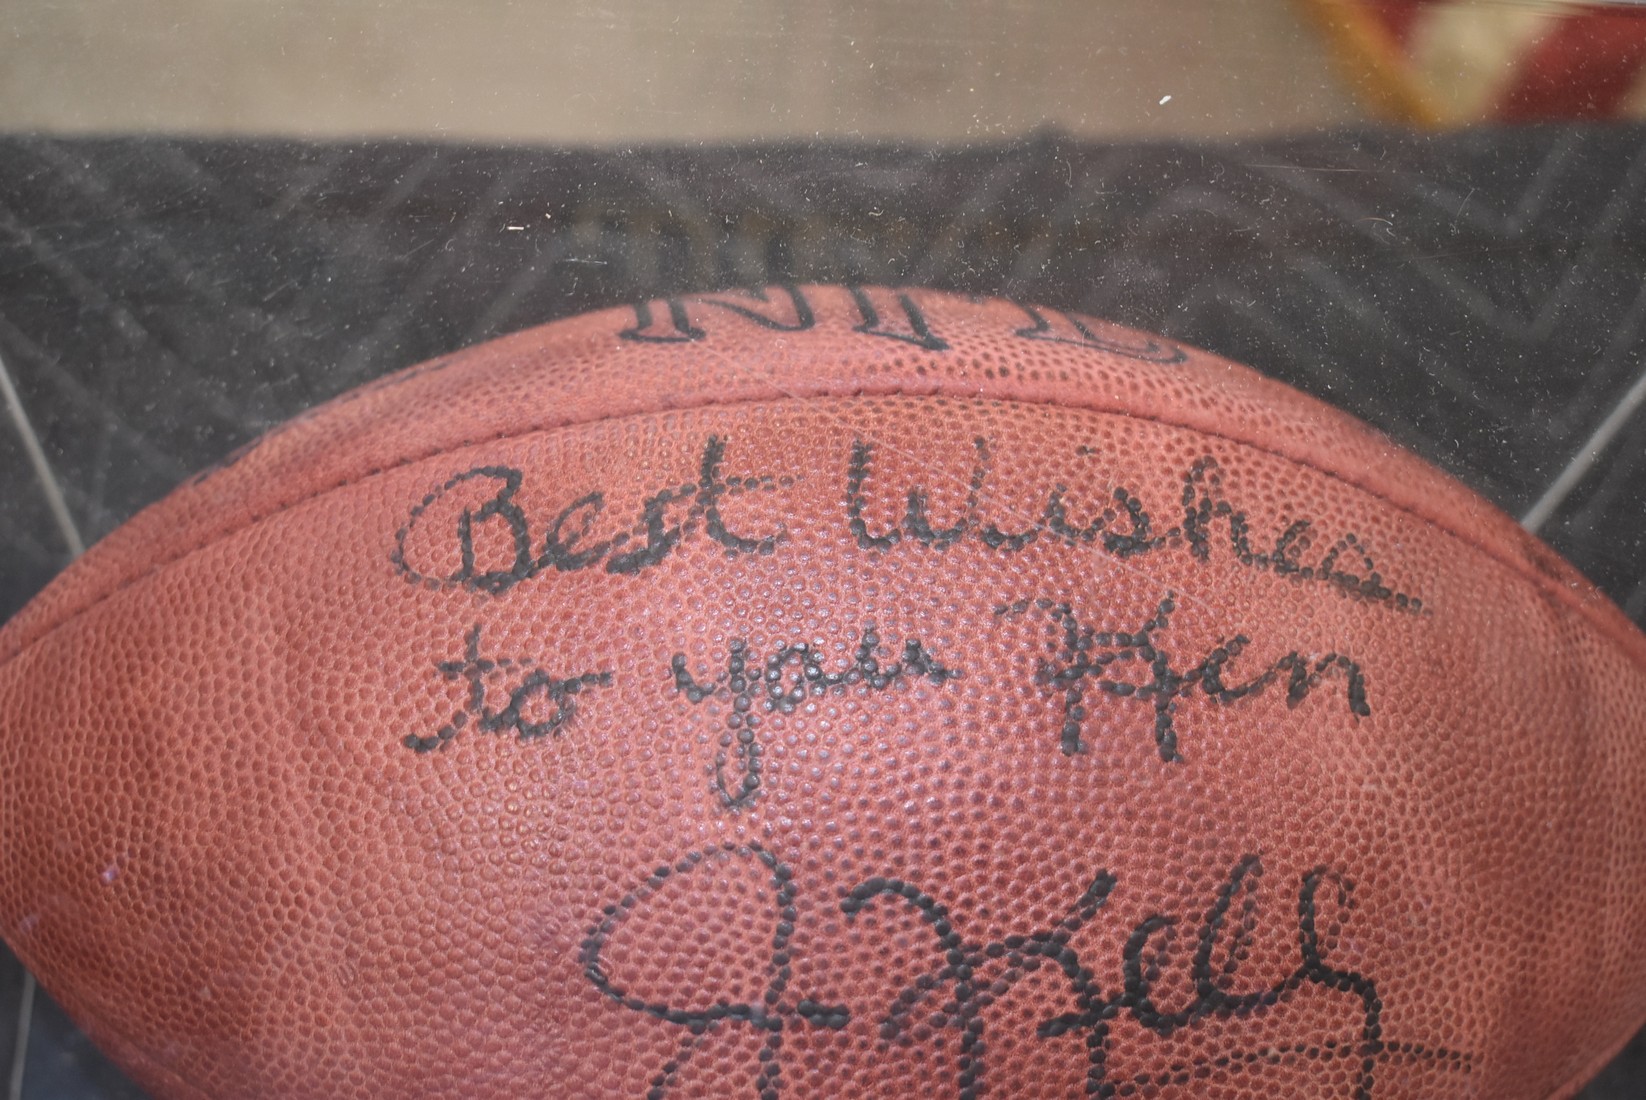 NFL
Best Wishes
to you Ken
J Kelly